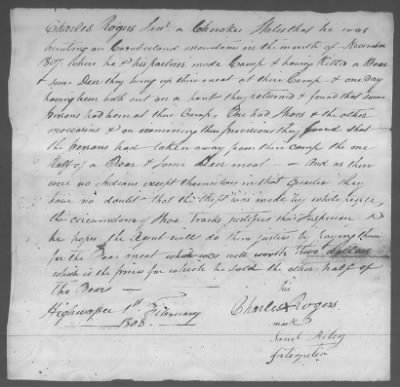 Charles Rogers Senr. a Cherokee States that he was
hunting on Cumberland mountain in the month of November
1807. where he & his partner made Camp & having Killed a Bear
& some Deer they hung up their meat at their Camp & one day
having been both out on a hunt they returned & found that some
persons had been at their Camp, One had Shoes & the other
mocasins & on examining their provisions they found that
the persons had taken away from their camp the one
half of a Bear & some Deer meat — and as there
were no Indians except themselves in that quarter they
have no doubt that the theft was made by white people,
the circumstance of Shoe tracks justifies their Suspicion &
he hopes the Agent will do them justice by paying them
for the Bear meat which was well worth dollars
which is the price for which he sold the other half of
the Bear —
Highwassee 1st February
1808.
his
Charles X Rogers
mark
Saml. Riley
Interpreter